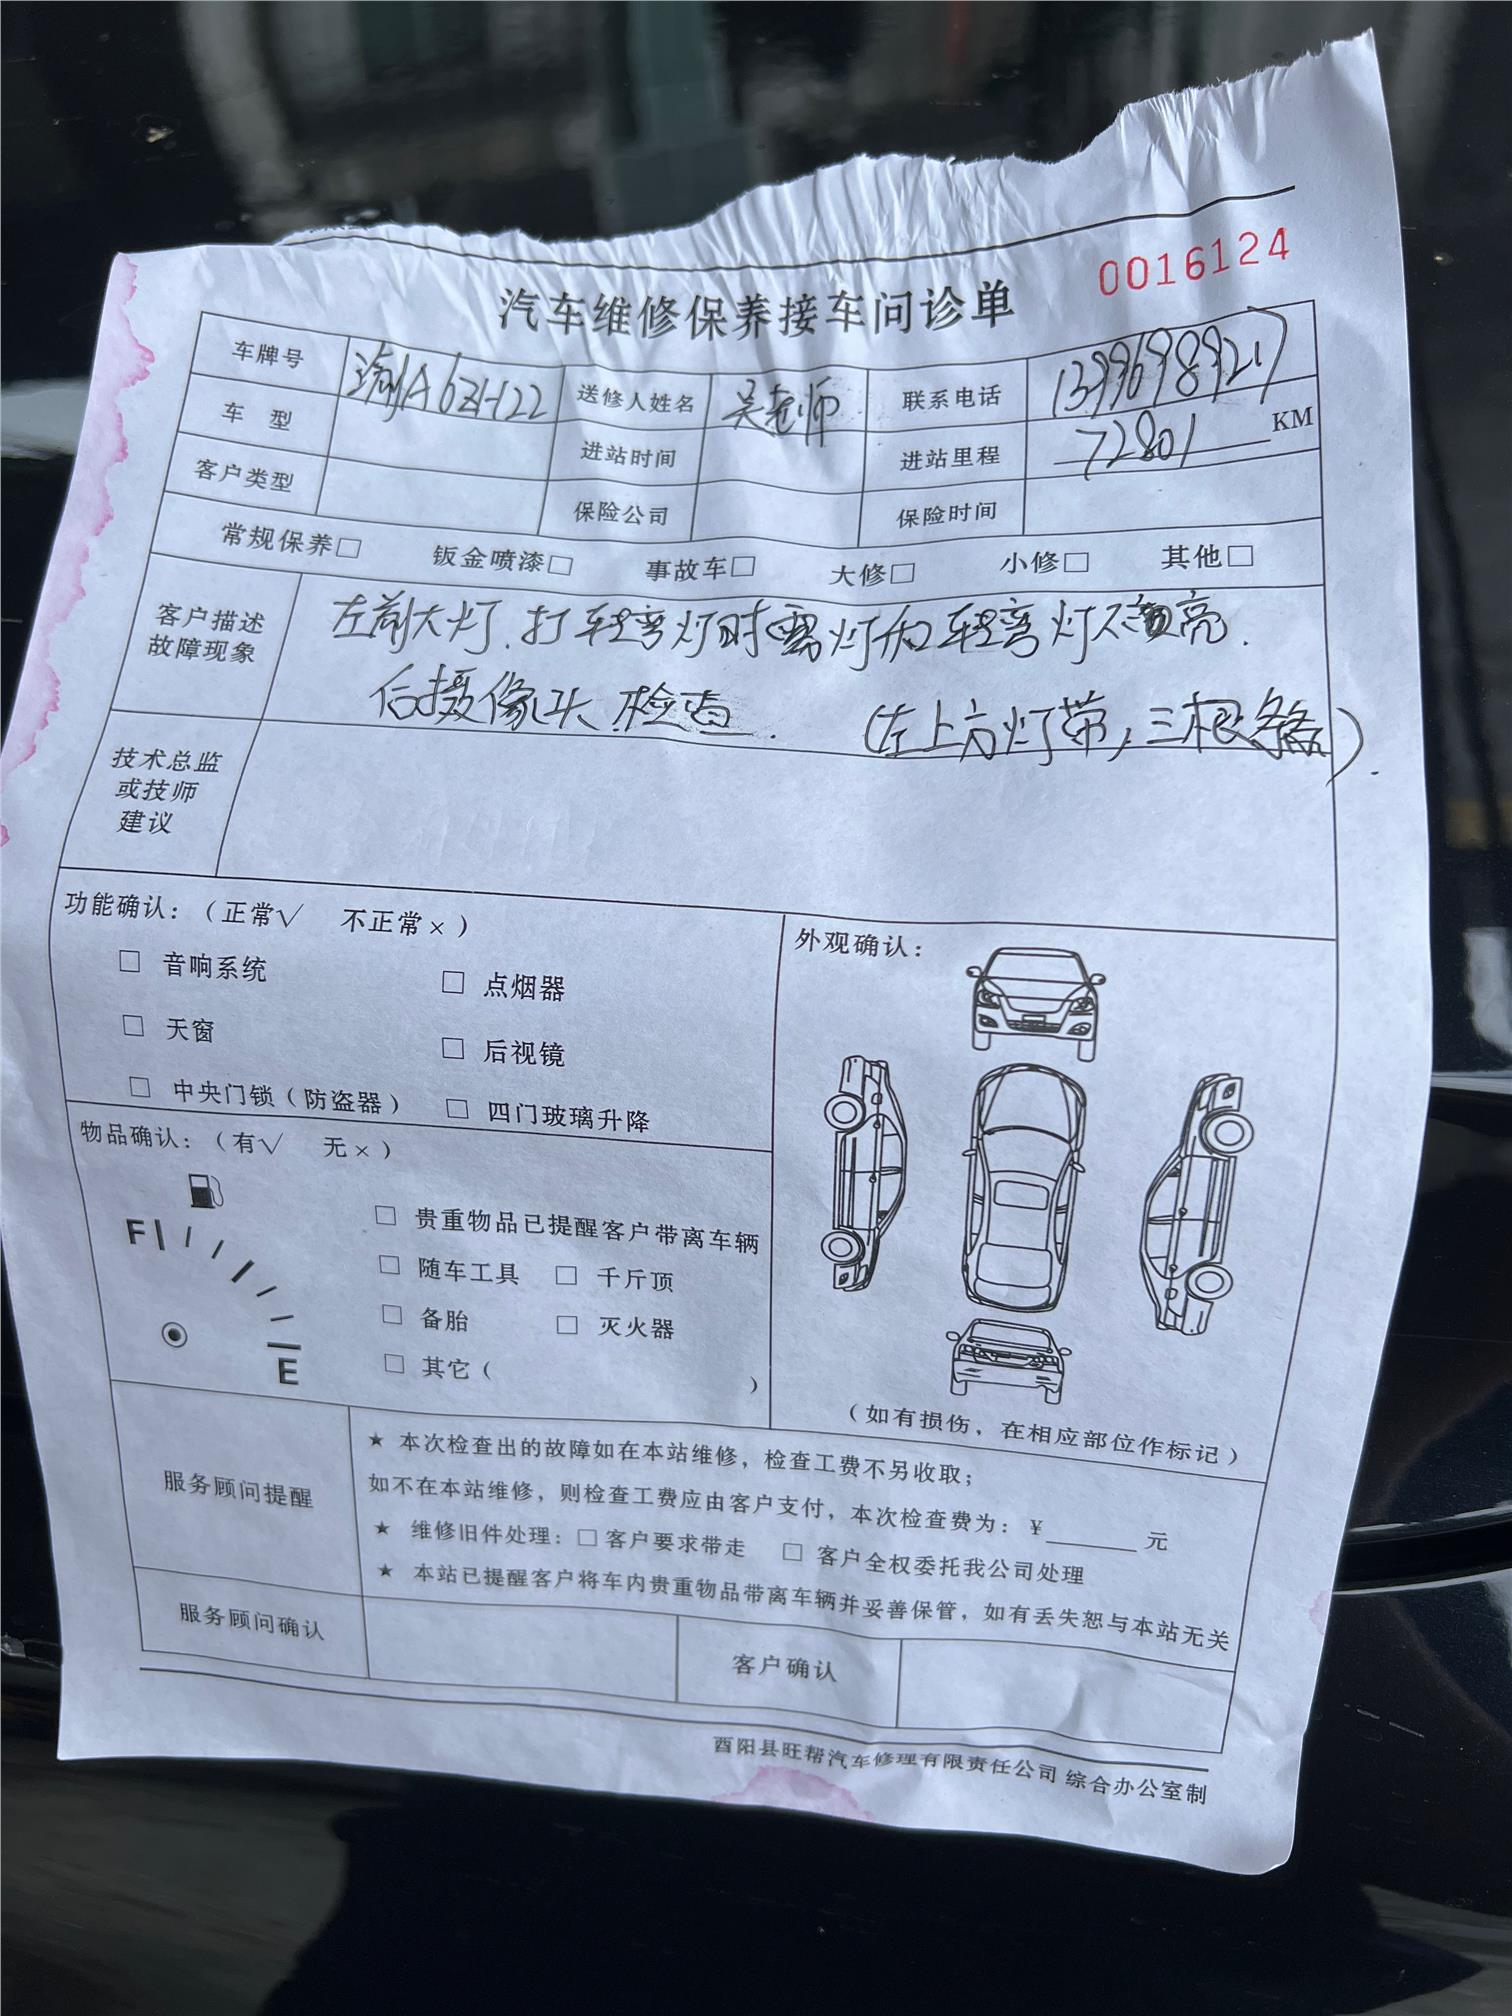 0016124
汽车维修保养接车问诊单
车牌号 送修人姓名 吴老师 联系电话
车 型 进站时间 进站里程 72801 KM
客户类型 保险公司 保险时间
常规保养□ 钣金喷漆□ 事故车□ 大修□ 小修□ 其他□
客户描述
故障现象
左前大灯.打转弯灯时雾灯和转弯灯不亮.
后摄像头.检查.
(左上方灯带,三根条).
技术总监
或技师
建议
功能确认:(正常√ 不正常×)
□ 音响系统 □ 点烟器
□ 天窗 □ 后视镜
□ 中央门锁(防盗器) □ 四门玻璃升降
外观确认:
物品确认:(有√ 无×)
F
E
□ 贵重物品已提醒客户带离车辆
□ 随车工具 □ 千斤顶
□ 备胎 □ 灭火器
□ 其它( )
(如有损伤,在相应部位作标记)
服务顾问提醒
★ 本次检查出的故障如在本站维修,检查工费不另收取;
如不在本站维修,则检查工费应由客户支付,本次检查费为:¥______元
★ 维修旧件处理:□客户要求带走 □ 客户全权委托我公司处理
★ 本站已提醒客户将车内贵重物品带离车辆并妥善保管,如有丢失恕与本站无关
服务顾问确认 客户确认
酉阳县旺帮汽车修理有限责任公司 综合办公室制